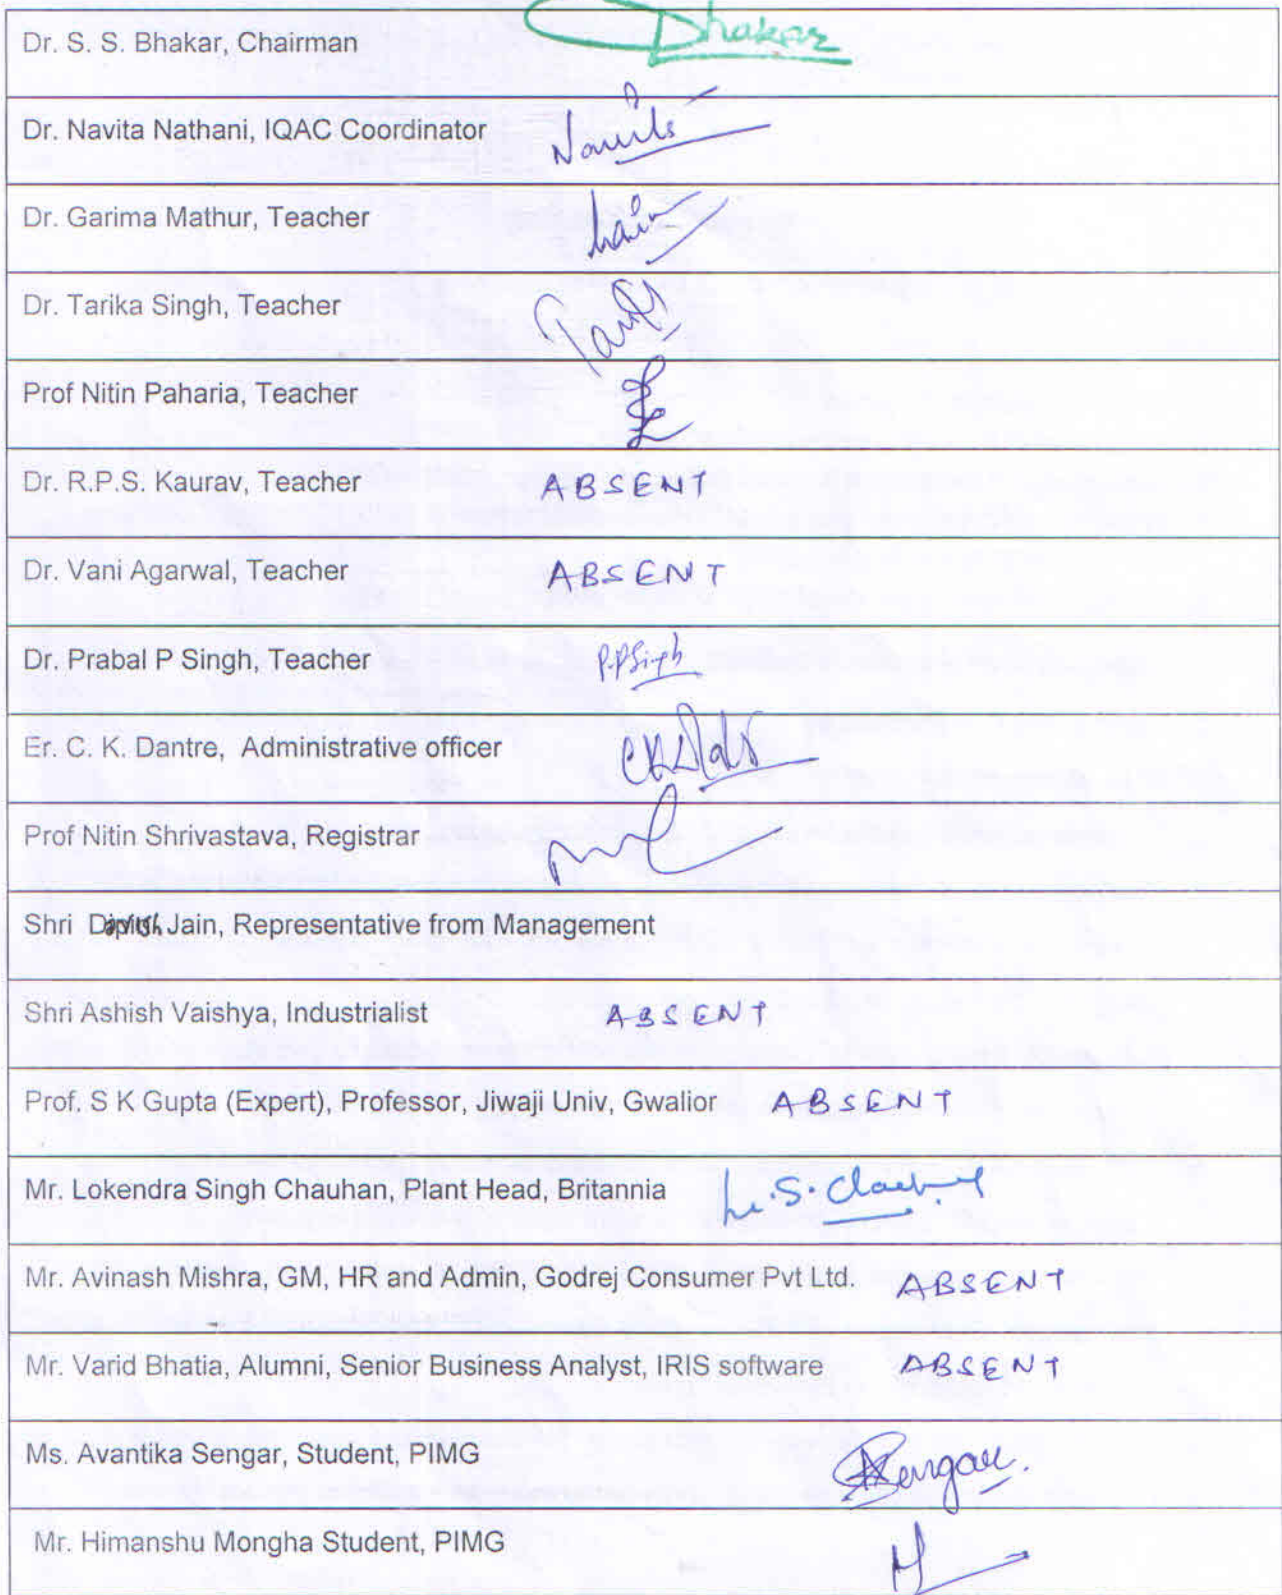 Dr. S. S. Bhakar, Chairman Bhakar
Dr. Navita Nathani, IQAC Coordinator Navita
Dr. Garima Mathur, Teacher
Dr. Tarika Singh, Teacher
Prof Nitin Paharia, Teacher
Dr. R.P.S. Kaurav, Teacher ABSENT
Dr. Vani Agarwal, Teacher ABSENT
Dr. Prabal P Singh, Teacher P.P Singh
Er. C. K. Dantre, Administrative officer
Prof Nitin Shrivastava, Registrar
Shri Jain, Representative from Management
Shri Ashish Vaishya, Industrialist ABSENT
Prof. S K Gupta (Expert), Professor, Jiwaji Univ, Gwalior ABSENT
Mr. Lokendra Singh Chauhan, Plant Head, Britannia L.S.
Mr. Avinash Mishra, GM, HR and Admin, Godrej Consumer Pvt Ltd. ABSENT
Mr. Varid Bhatia, Alumni, Senior Business Analyst, IRIS software ABSENT
Ms. Avantika Sengar, Student, PIMG Sengar.
Mr. Himanshu Mongha Student, PIMG